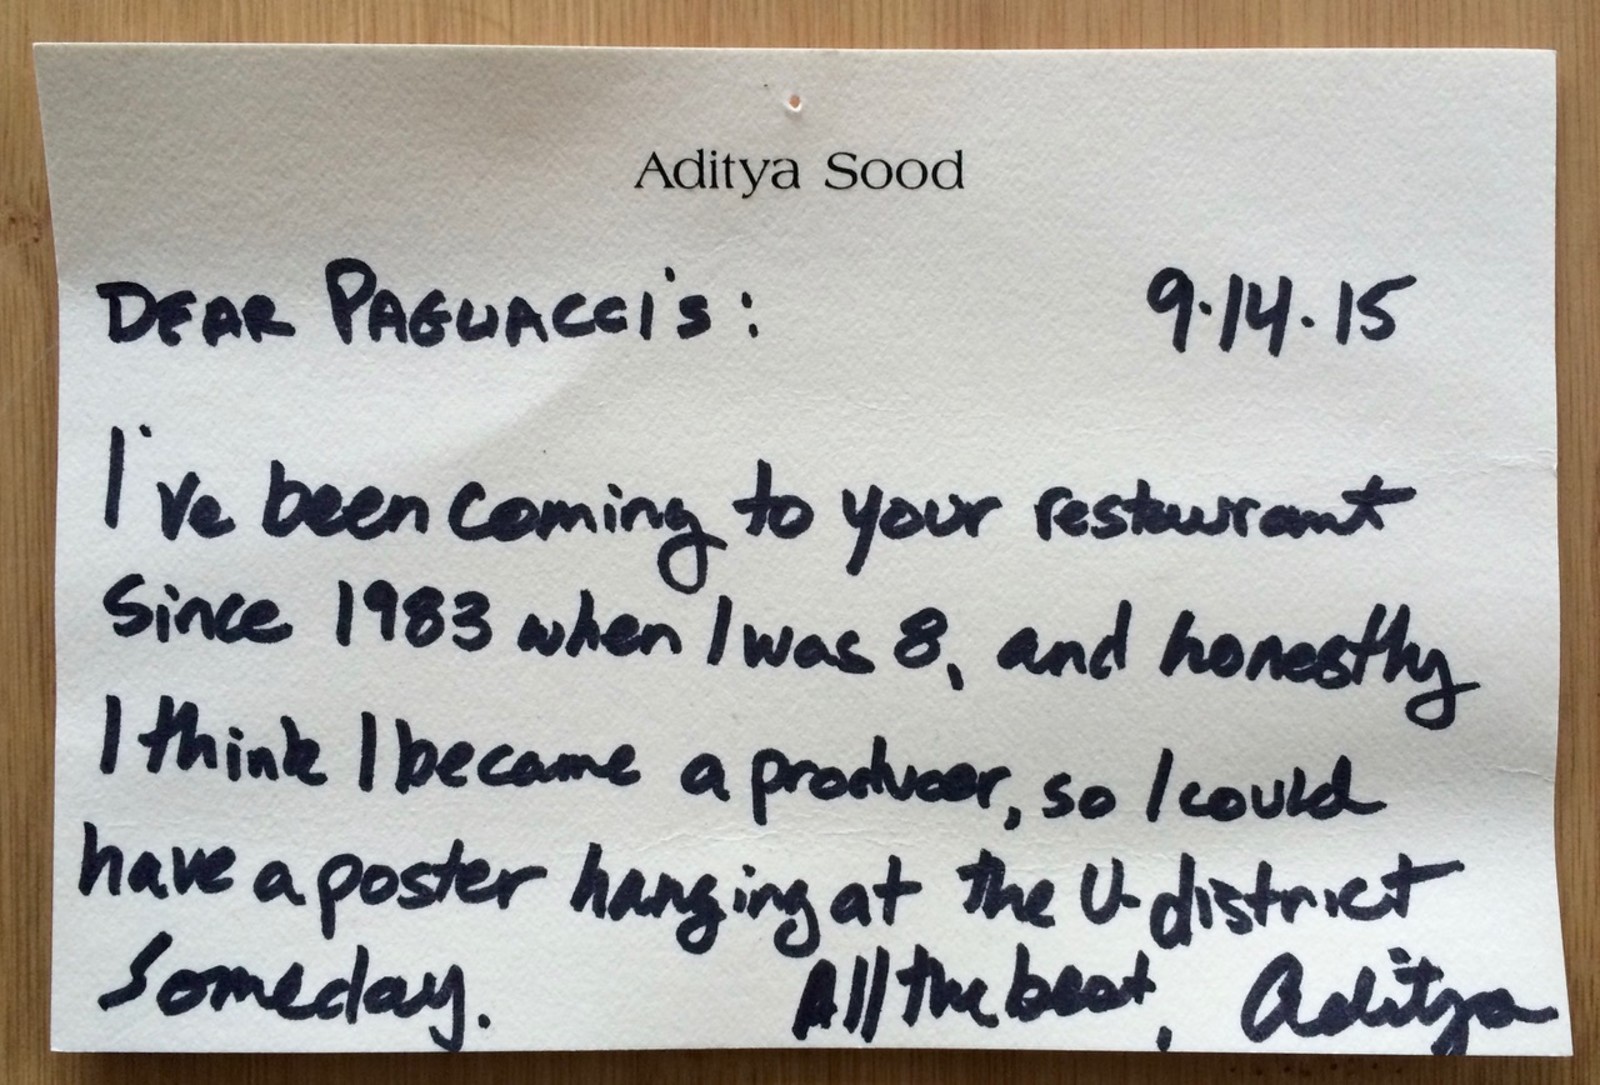 Aditya Sood
DEAR PAGLIACCI'S: 9.14.15
I've been coming to your restaurant
since 1983 when I was 8, and honestly
I think I became a producer, so I could
have a poster hanging at the U-district
someday. All the best, Aditya